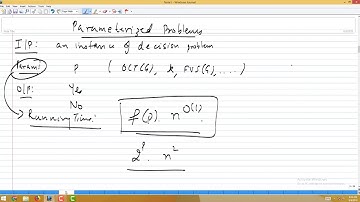 Parameterized Problems
I/P: an instance of decision problem
Param: p ( OCT(G), k, FVS(G), .....)
O/P: Yes
No
Running Time: f(p) n^O(1).
2^p. n^2